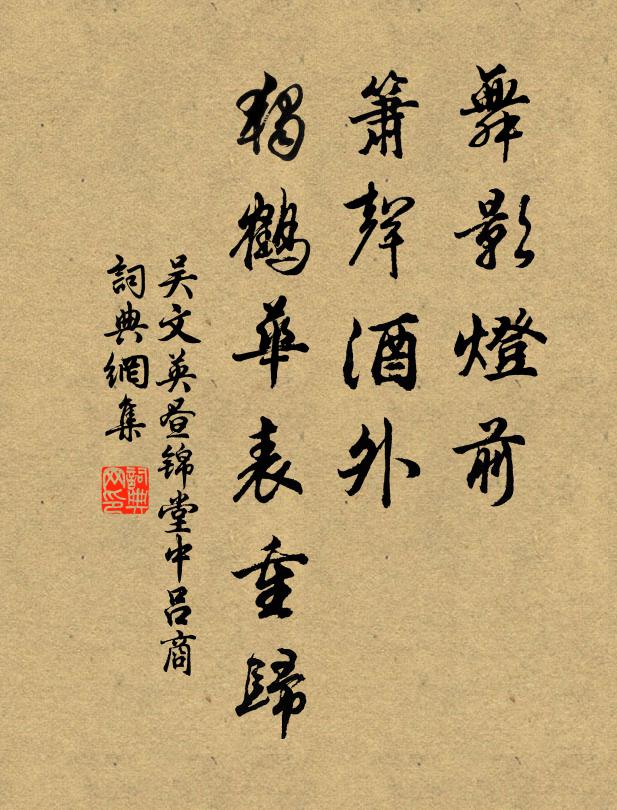 舞影燈前
簫聲酒外
獨鶴華表重歸
吴文英昼锦堂中吕商
詞典網集
詞典網印